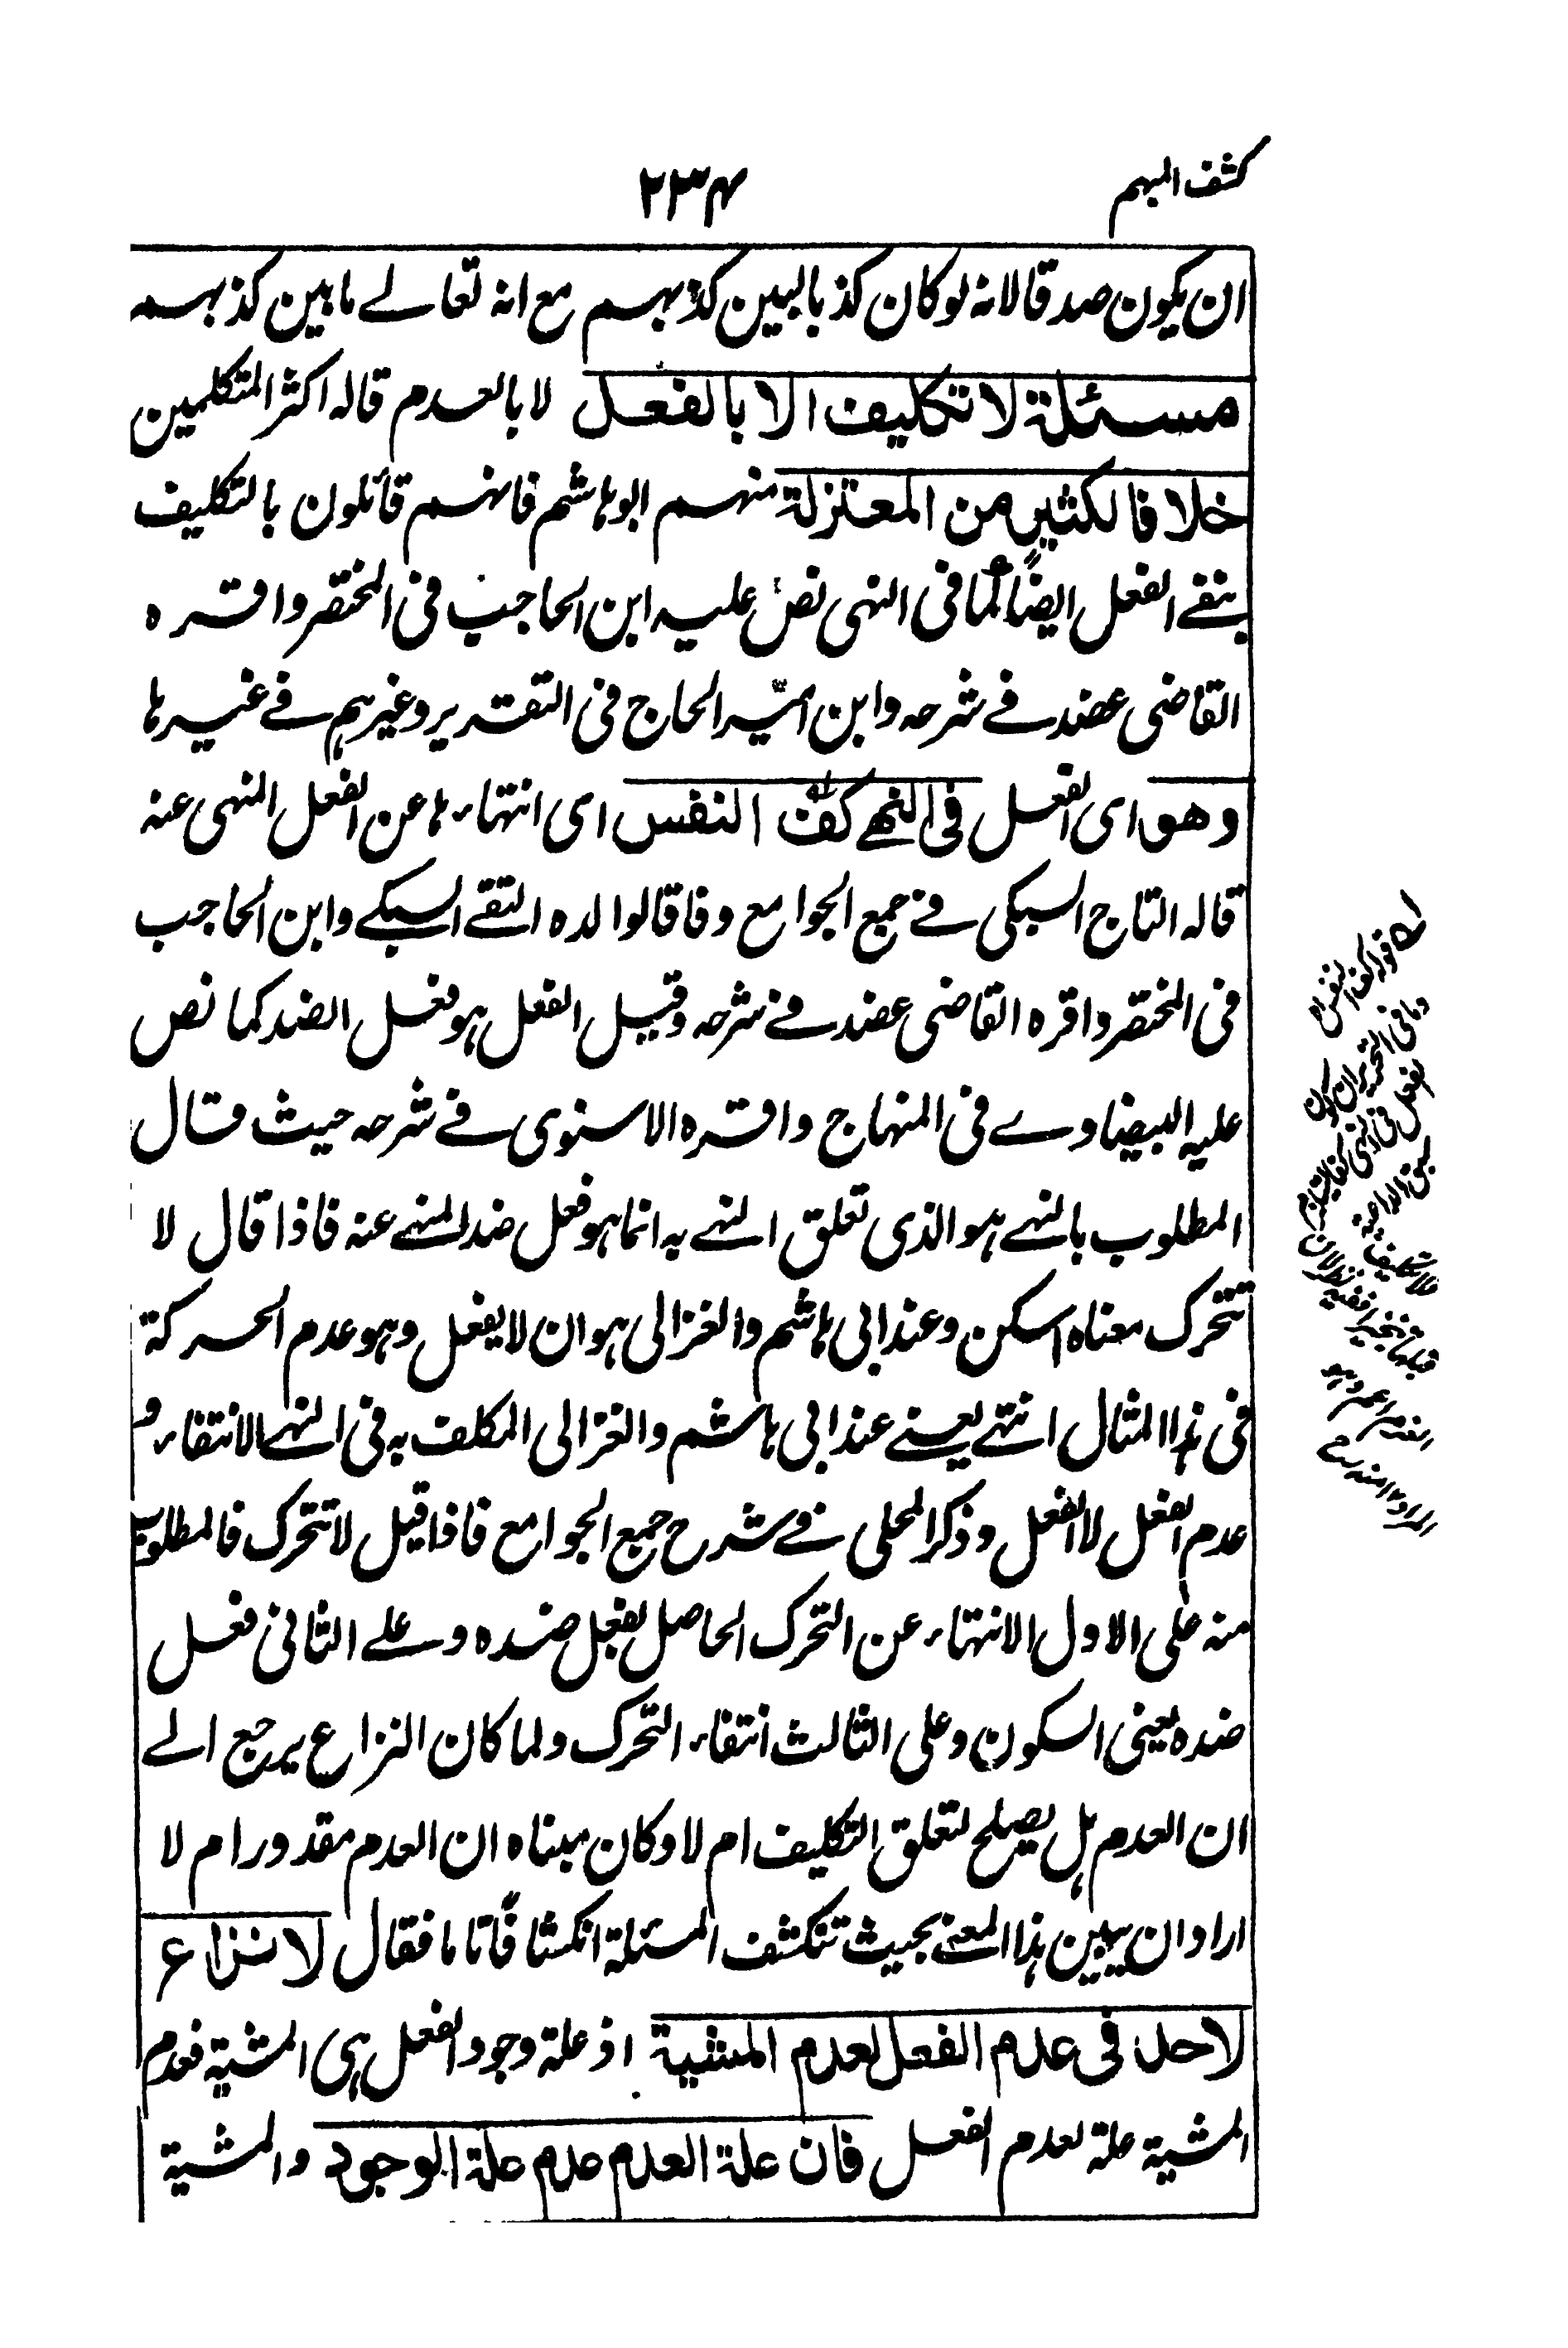 كشف المبهم
٢٣٤
ان يكون صدقا لانه لو كان كذبا لبين كذبهم مع انه تعالے ما بين كذبهم
مسئلة لا تكليف الا بالفعل لا بالعدم قاله اكثر المتكلمين
خلافا لكثير من المعتزلة منهم ابو هاشم فانهم قائلون بالتكليف
بنفے الفعل ايضًا كما فى النهى نص عليه ابن الحاجب فى المختصر واقره
القاضى عضد فے شرحه وابن امير الحاج فى التقرير وغيرهم فے غيرها
وهو اى الفعل فى النهے كف النفس اى انتهاءها عن الفعل المنهى عنه
قاله التاج السبكى فے جمع الجوامع وفاقا لوالده التقے السبكے وابن الحاجب
فى المختصر واقره القاضى عضد فے شرحه وقيل الفعل هو فعل الضد كما نص
عليه البيضاوے فى المنهاج واقره الاسنوى فے شرحه حيث قال
المطلوب بالنهے هو الذى تعلق النهے به انما هو فعل ضد المنهے عنه فاذا قال لا
تتحرك معناه اسكن وعند ابى هاشم والغزالى هو ان لا يفعل وهو عدم الحركة
فى هذا المثال انتهے يعنے عند ابى هاشم والغزالى المكلف به فى النهے الانتفاء و
عدم الفعل لا الفعل وذكر المحلى فے شرح جمع الجوامع فاذا قيل لا تتحرك فالمطلوب
منه على الاول الانتهاء عن التحرك الحاصل بفعل ضده وعلے الثانى فعل
ضده يعنى السكون وعلى الثالث انتفاء التحرك ولما كان النزاع يرجع الے
ان العدم هل يصلح لتعلق التكليف ام لا وكان مبناه ان العدم مقدور ام لا
اراد ان يبين هذا المعنے بحيث تنكشف المسئلة انكشافًا تاما فقال لا نزاع
لاحد فى عدم الفعل لعدم المشية اذ علة وجود الفعل هى المشية فعدم
المشية علة لعدم الفعل فان علة العدم عدم علة الوجود والمشية
قوله كف النفس
وما فى التحرير ان كون
الفعل فى النهى كفا يستلزم